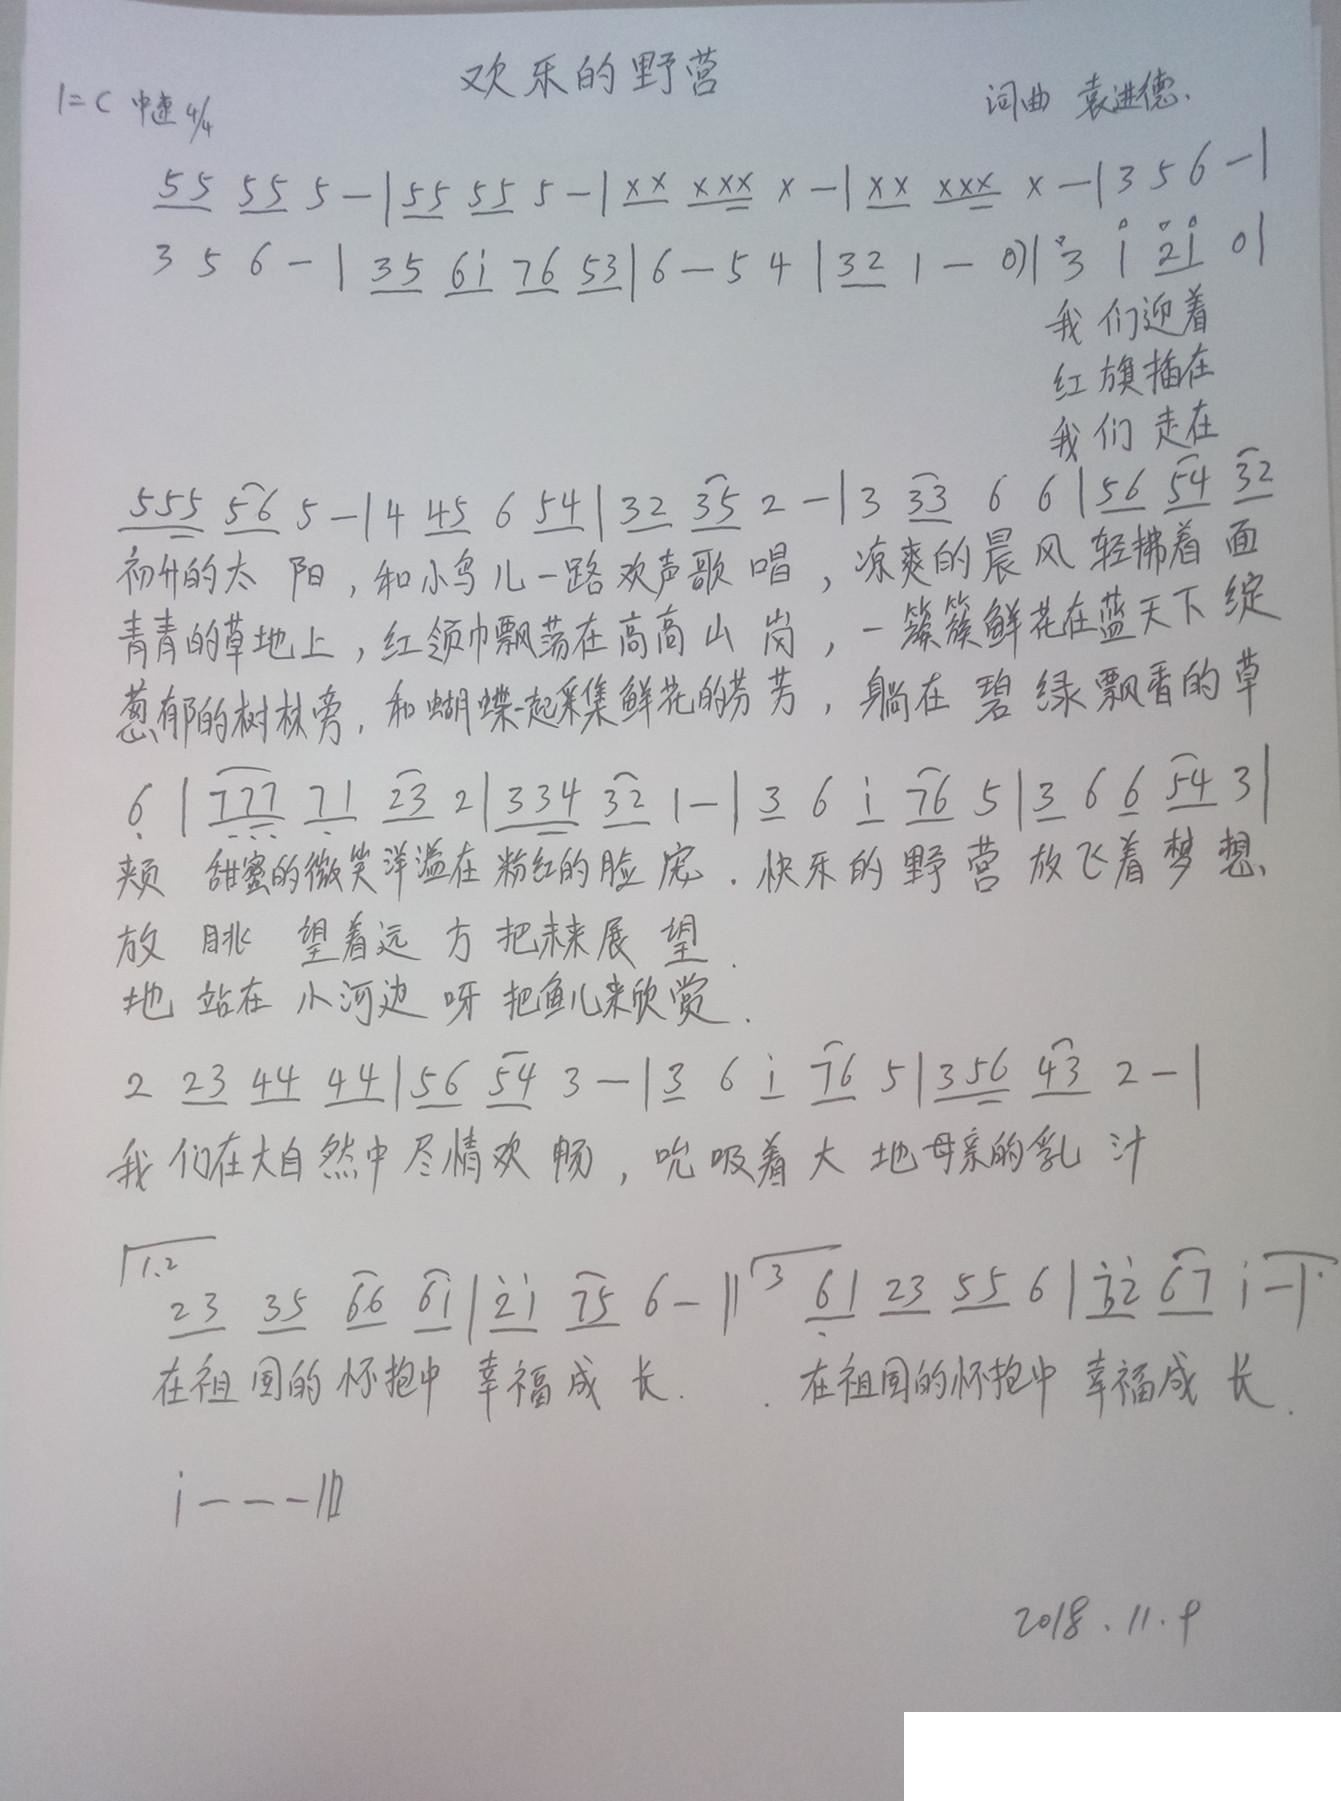 欢乐的野营
1=C 中速 4/4
词曲 袁进德.
55 55 5 - | 55 55 5 - | xx xxx x - | xx xxx x - | 3 5 6 - |
3 5 6 - | 35 6i 76 53 | 6 - 5 4 | 32 1 - 0) | 3 i 2i 0 |
我们迎着
红旗插在
我们走在
555 56 5 - | 4 45 6 54 | 32 35 2 - | 3 33 6 6 | 56 54 32
初升的太 阳,和小鸟儿一路欢声歌 唱,凉爽的晨风轻拂着面
青青的草地上,红领巾飘荡在高高山 岗,一簇簇鲜花在蓝天下绽
葱郁的树林旁,和蝴蝶一起采集鲜花的芬芳,躺在碧绿飘香的草
6 | 777 71 23 2 | 334 32 1 - | 3 6 i 76 5 | 3 6 6 54 3 |
颊 甜蜜的微笑洋溢在粉红的脸庞.快乐的野营放飞着梦想、
放 眺望着远方把未来展望.
地 站在小河边呀把鱼儿来欣赏.
2 23 44 44 | 56 54 3 - | 3 6 i 76 5 | 356 43 2 - |
我们在大自然中尽情欢畅,吮吸着大地母亲的乳汁
1.2 23 35 66 6i | 2i 75 6 - || 3 61 23 55 6 | 12 67 i - |
在祖国的怀抱中幸福成长. . 在祖国的怀抱中幸福成长.
i - - - ||
2018.11.9